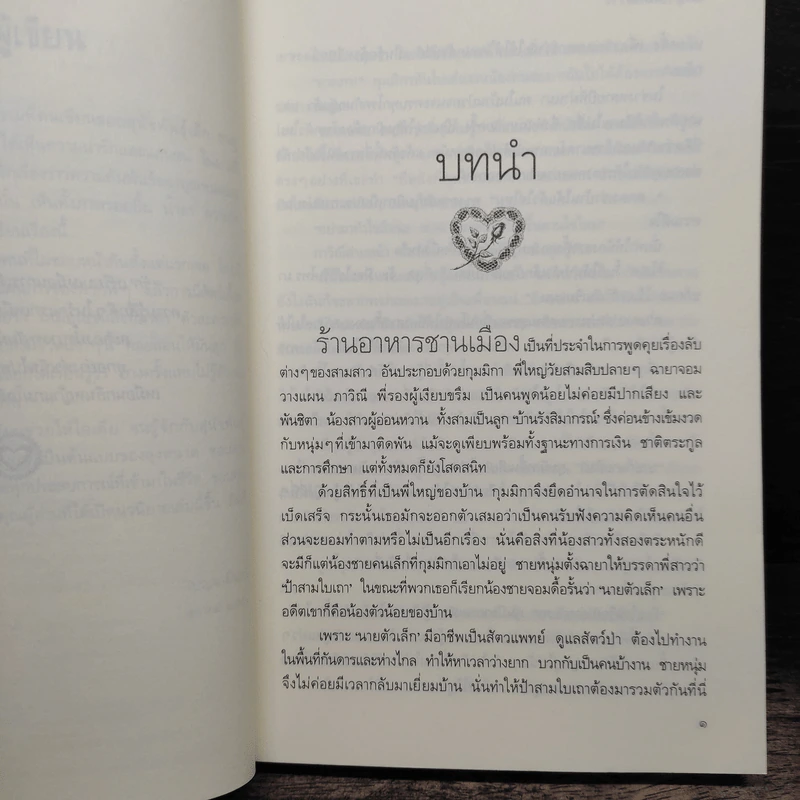 บทนำ
ร้านอาหารชานเมือง เป็นที่ประจำในการพูดคุยเรื่องลับ
ต่างๆของสามสาว อันประกอบด้วยกุมมิกา พี่ใหญ่วัยสามสิบปลายๆ ฉายาจอม
วางแผน ภาวิณี พี่รองผู้เงียบขรึม เป็นคนพูดน้อยไม่ค่อยมีปากเสียง และ
พันธิตา น้องสาวผู้อ่อนหวาน ทั้งสามเป็นลูก ‘บ้านรังสิมากรณ์’ ซึ่งค่อนข้างเข้มงวด
กับหนุ่มๆที่เข้ามาติดพัน แม้จะดูเพียบพร้อมทั้งฐานะทางการเงิน ชาติตระกูล
และการศึกษา แต่ทั้งหมดก็ยังโสดสนิท
ด้วยสิทธิ์ที่เป็นพี่ใหญ่ของบ้าน กุมมิกาจึงยึดอำนาจในการตัดสินใจไว้
เบ็ดเสร็จ กระนั้นเธอมักจะออกตัวเสมอว่าเป็นคนรับฟังความคิดเห็นคนอื่น
ส่วนจะยอมทำตามหรือไม่เป็นอีกเรื่อง นั่นคือสิ่งที่น้องสาวทั้งสองตระหนักดี
จะมีก็แต่น้องชายคนเล็กที่กุมมิกาเอาไม่อยู่ ชายหนุ่มตั้งฉายาให้บรรดาพี่สาวว่า
‘ป้าสามใบเถา’ ในขณะที่พวกเธอก็เรียกน้องชายจอมดื้อรั้นว่า ‘นายตัวเล็ก’ เพราะ
อดีตเขาก็คือน้องตัวน้อยของบ้าน
เพราะ ‘นายตัวเล็ก’ มีอาชีพเป็นสัตวแพทย์ ดูแลสัตว์ป่า ต้องไปทำงาน
ในพื้นที่กันดารและห่างไกล ทำให้หาเวลาว่างยาก บวกกับเป็นคนบ้างาน ชายหนุ่ม
จึงไม่ค่อยมีเวลากลับมาเยี่ยมบ้าน นั่นทำให้ป้าสามใบเถาต้องมารวมตัวกันที่นี่
๑